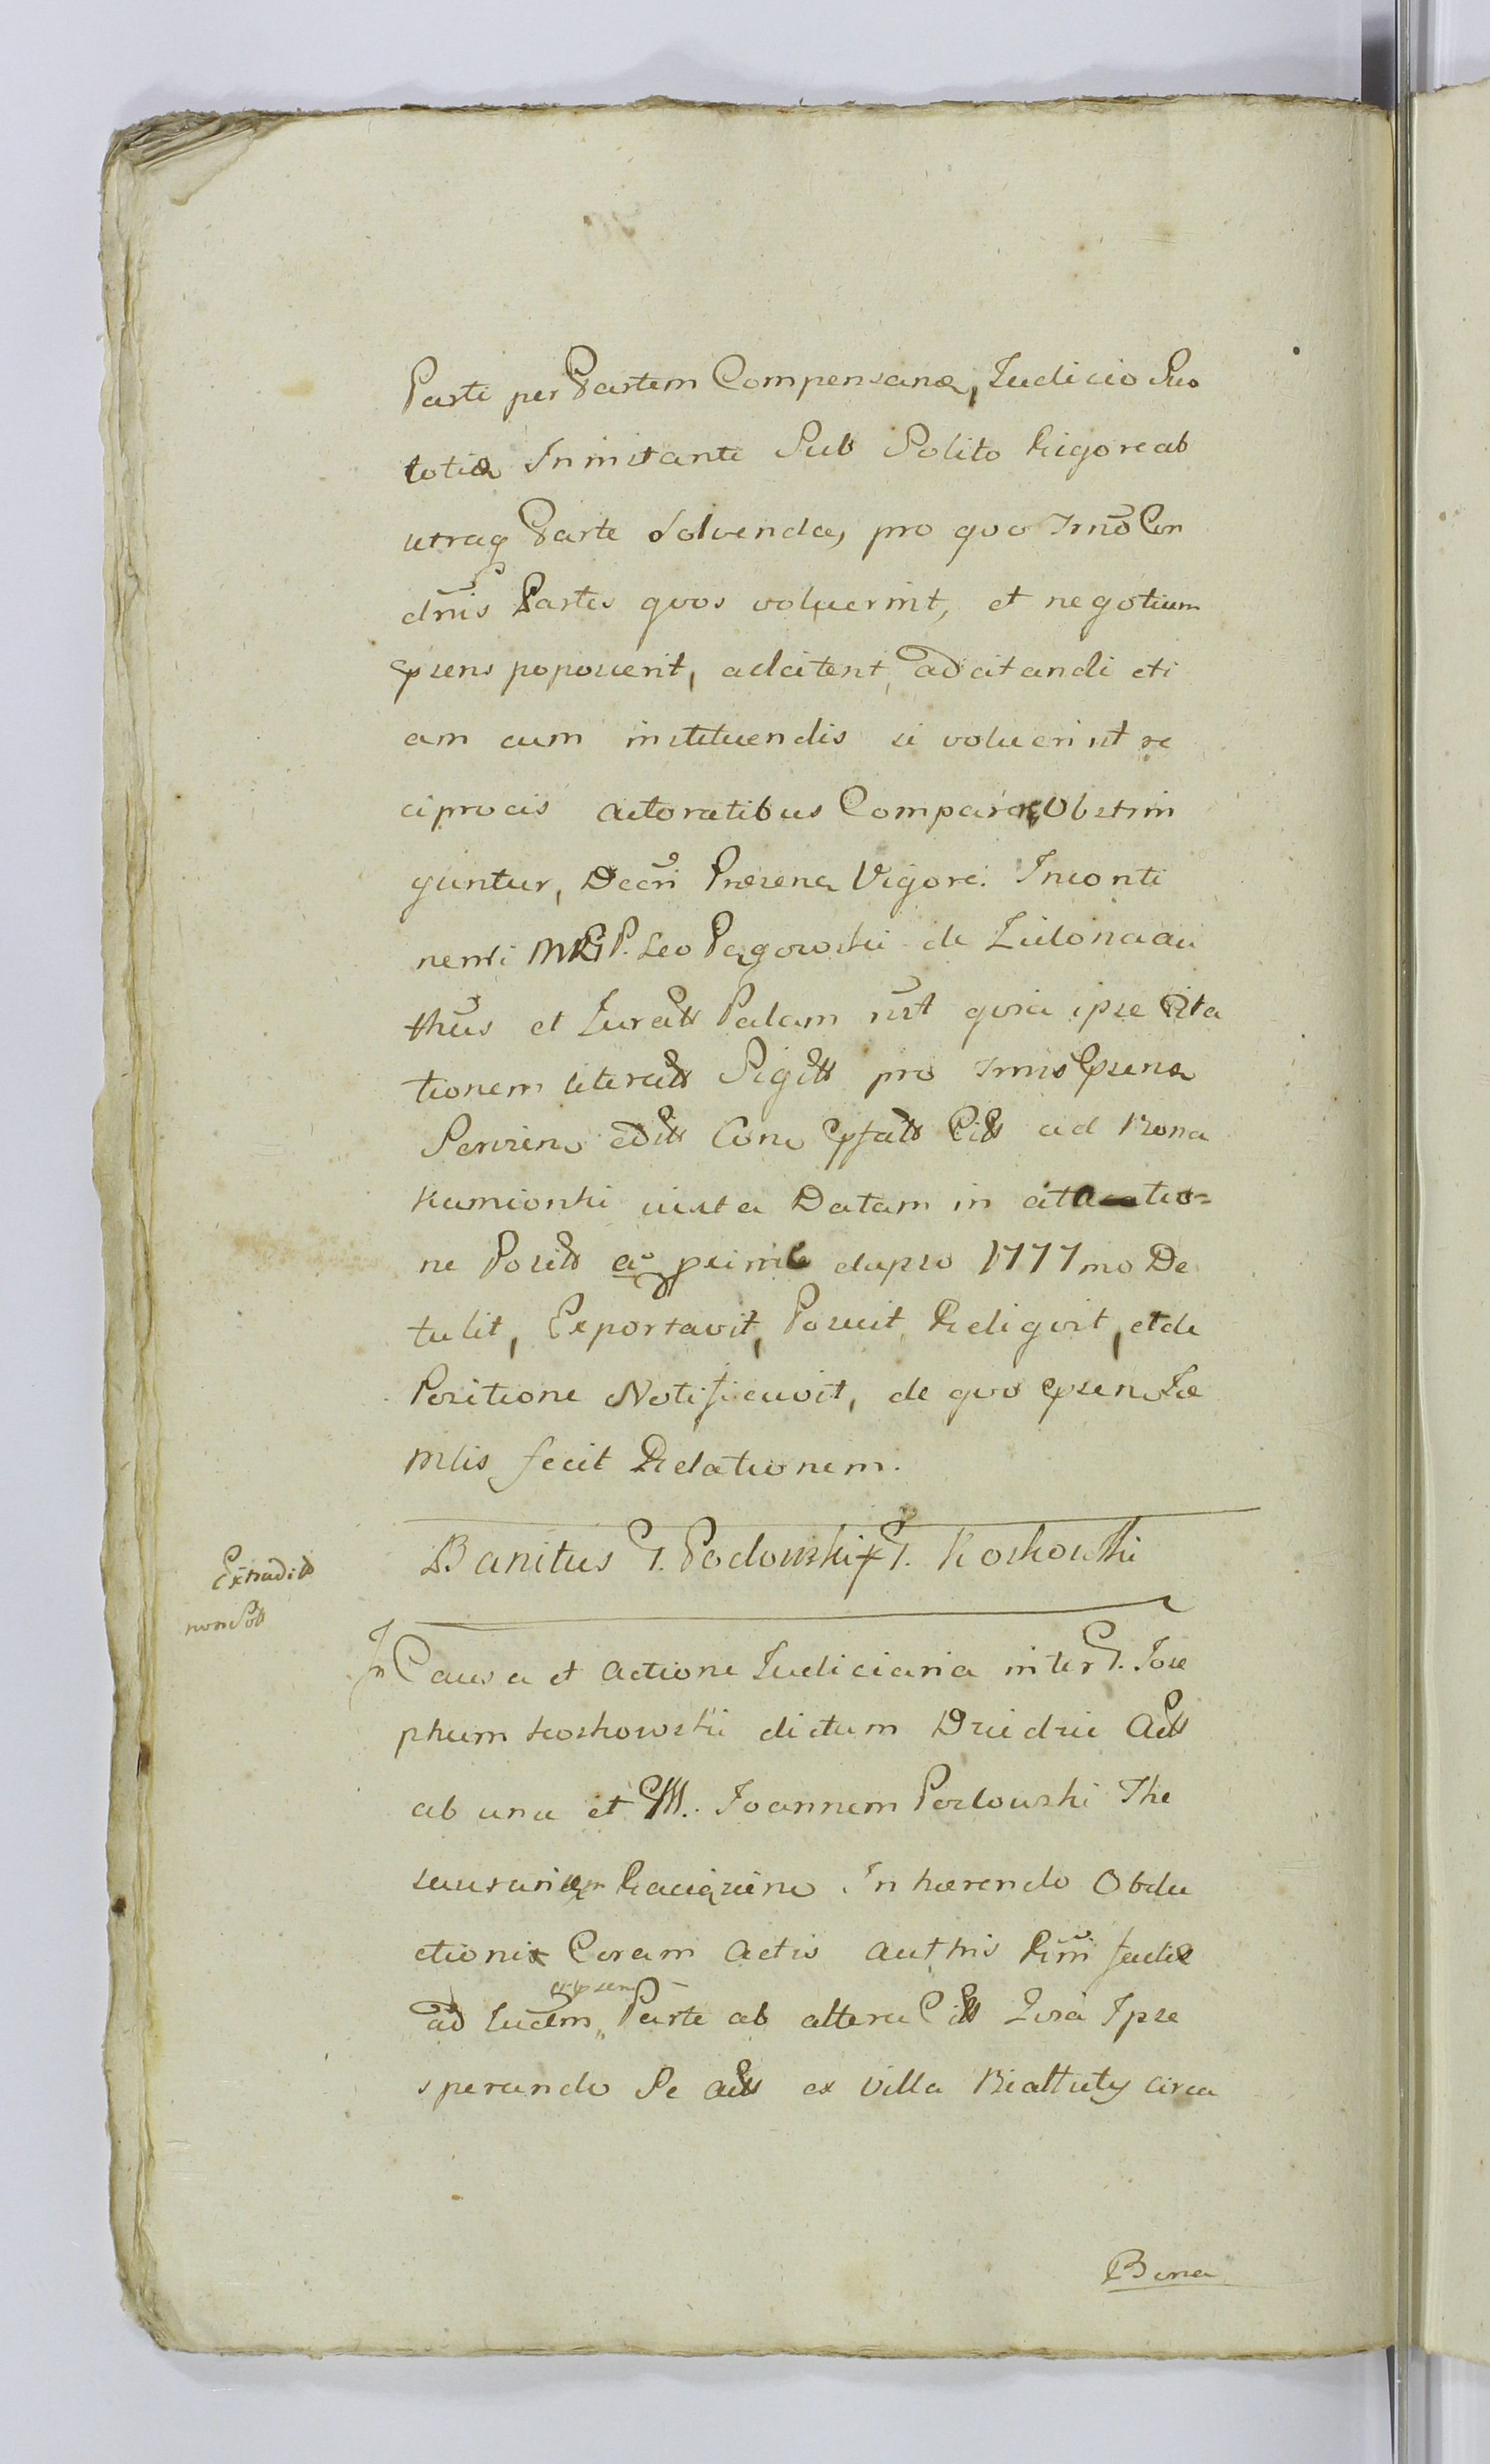 Parti per Partem Compensanā, Iudicio Suo
totiā Inmitante Sub Solito Rigore ab
utraq Parte Solvendā, pro quo Trnō Con
dnīs Partes quos voluerint, et negotium
psens poposcerit, adcitent, adcitandi eti
am cum instituendis si voluerint re
ciprocis actoratibus Comparere Obstrin
guntur, Decri Præsena Vigore. Inconti
nenti MGP. Leo Pągowski de
thūs et Jurats Palam rūt quia ipse Cita
tionem literats Sigits pro Trnis psena
edits Cone psats Cits ad Bona
Kamionki iuxta Datam in citatio=
ne Posits aō elapso 1777mo De
tulit, Exportavit, Posuit, Reliqvit, et de
Positione Notificavit, de quo psens Iæ
Mlis fecit Relationem.
Banitus G. Podowski x G. Koskowski
Extradits
non Sots
In Causa et Actione Iudiciaria inter G. Jose
phum Koskowski dictum Dziedzic Acts
ab una et M. Joannem Podowski The
saurarium Raciązine Inhærendo Obdu
ctionis Coram Actis Authis
ad Iucem Parte ab altera Cits Qvia Ipse
sperando Se Acts ex Villa Białłuty circa
Bona